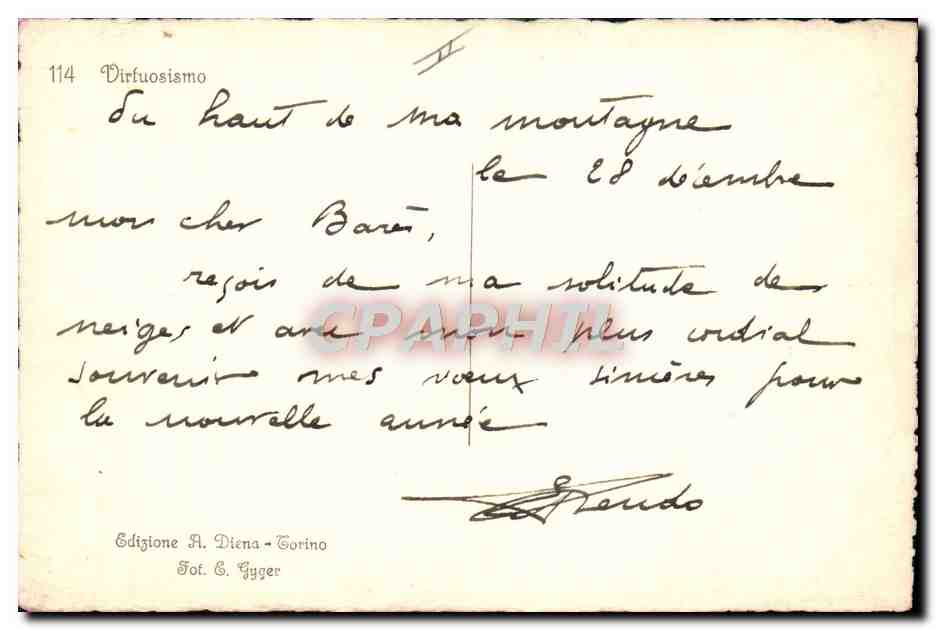 II
114 Virtuosismo
Du haut de ma montagne
le 28 décembre
mon cher
reçois de ma solitude des
neiges et avec mon plus cordial
souvenir mes vœux sincères pour
la nouvelle année
CPAPHIL
Edizione A. Diena - Torino
Fot. E. Gyger